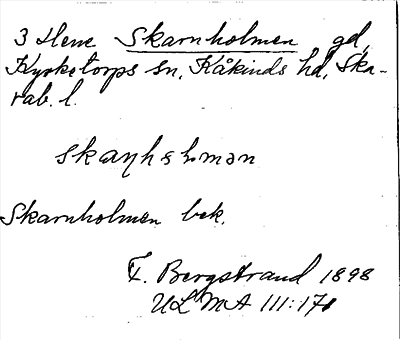 3 Hene Skarnholmen gd,
Kyrketorps sn, Kåkinds hd, Ska-
rab. l.
skaṇhɞlmən
Skarnholmen bek.
F. Bergstrand 1898
ULMA 111:171